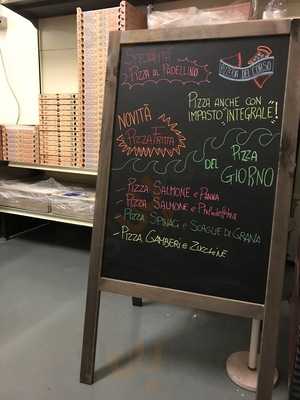 SPECIALITÀ
PIZZA AL PADELLINO
PIZZERIA DEL CORSO
PIZZA ANCHE CON
IMPASTO INTEGRALE!
NOVITÀ
PIZZA FRITTA
PIZZA
DEL
GIORNO
- PIZZA SALMONE e PANNA
- PIZZA SALMONE e Philadelphia
- PIZZA SPINACI e SCAGLIE DI GRANA
- PIZZA GAMBERI e ZUCCHINE